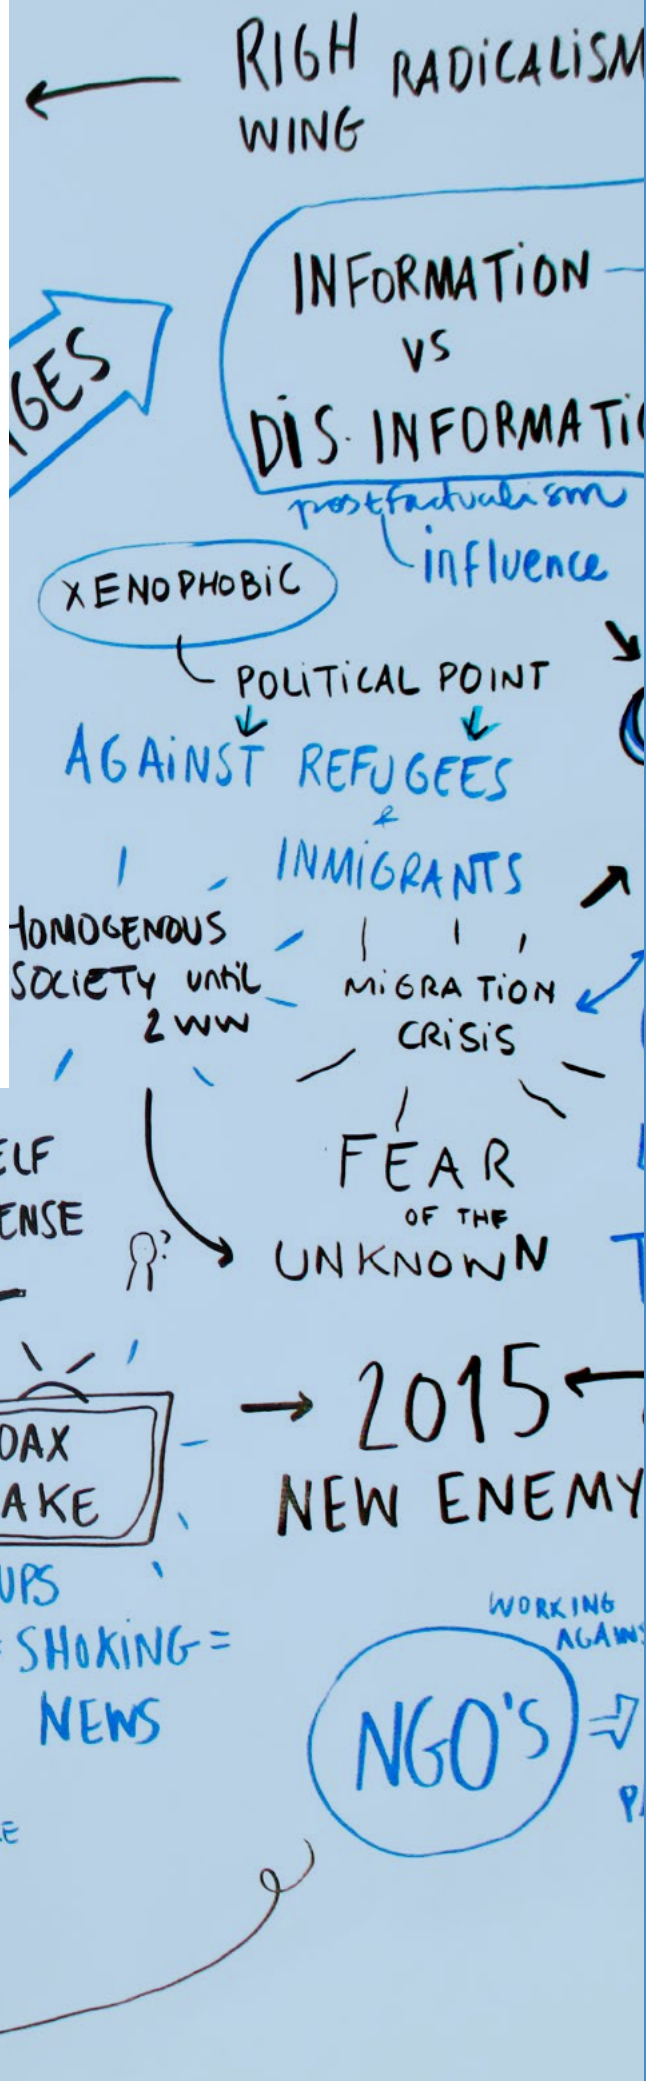 RIGH RADICALISM
WING
INFORMATION
VS
DIS. INFORMATI
GES
postfactualism
influence
XENOPHOBIC
POLITICAL POINT
AGAINST REFUGEES
&
INMIGRANTS
HOMOGENOUS
SOCIETY until
2 WW
MIGRATION
CRISIS
ELF
ENSE
FEAR
OF THE
UNKNOWN
?
2015
NEW ENEMY
OAX
AKE
UPS
= SHOKING =
NEWS
WORKING
AGAINS
NGO'S